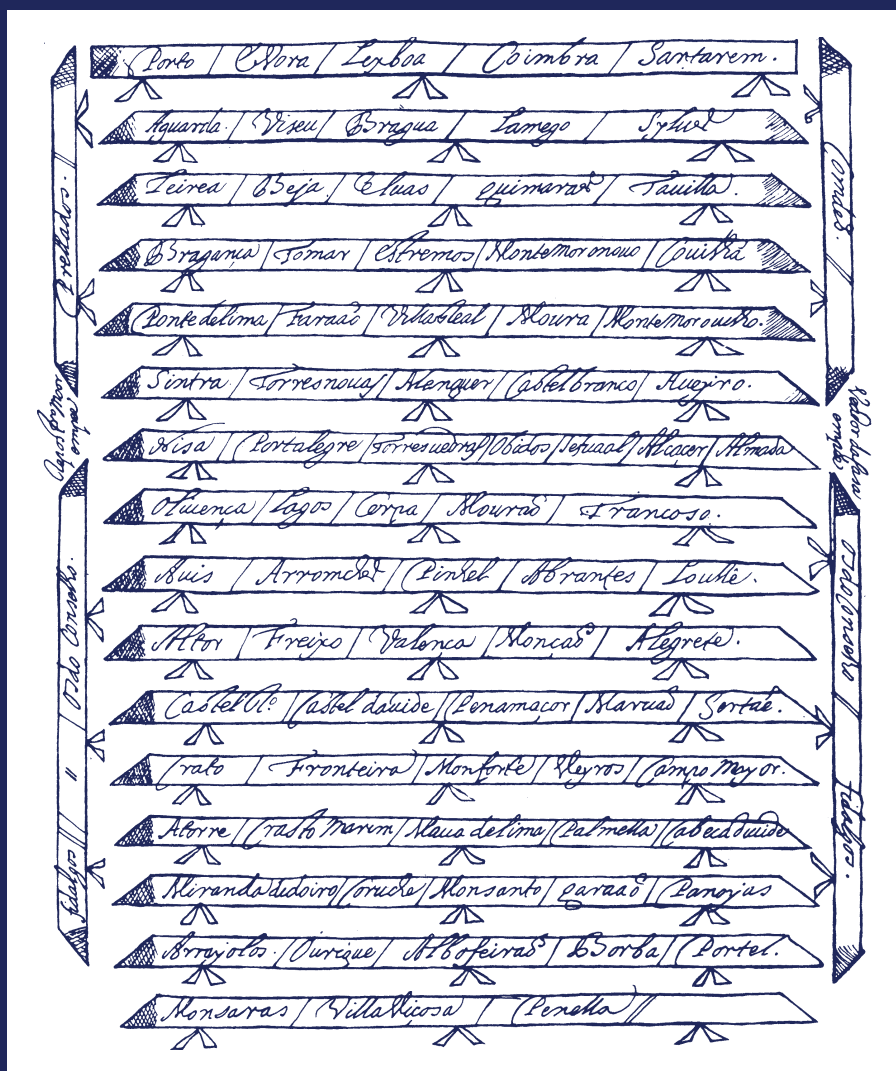 Porto / Evora / Lexboa / Coimbra / Santarem.
Aguarda. / Viseu / Bragua / Lamego / Sylues
Leirea / Beja / Eluas / guimaraes / Tauilla.
Bragança / Tomar / Estremos / Montemoronouo / Couilhã
Ponte de lima / Faraaõ / Villa Real / Moura / Montemorouelho.
Sintra / Torresnouas / Alenquer / Castelbranco / Aueyro.
Nisa / Portalegre / Torresuedras / Obidos / Setuual / Alcaçer / Almada
Oliuença / Lagos / Cerpa / Mouraõ / Trancoso.
Auis / Arromches / Pinhel / Abrantes / Loulle.
Alter / Freixo / Valença / Monçaõ / Alegrete.
Castel Rº. / Castel dauide / Penamaçor / Maruaõ / Sertãe.
Crato / Fronteira / Monforte / Veyros / Campo mayor.
Atorre / Crasto Marim / Maua delima / Palmella / Cabecaduide
Miranda dedoiro / Coruche / Monsanto / garuaõ / Panoyas
Arrayolos. / Ourique / Albofeiraõ / Borba / Portel.
Monsaras / Villa Viçosa / Penella //
Prellados. //
Osdo Conselho.
fidalgos //
Condes. //
Osdoconselho //
fidalgos.